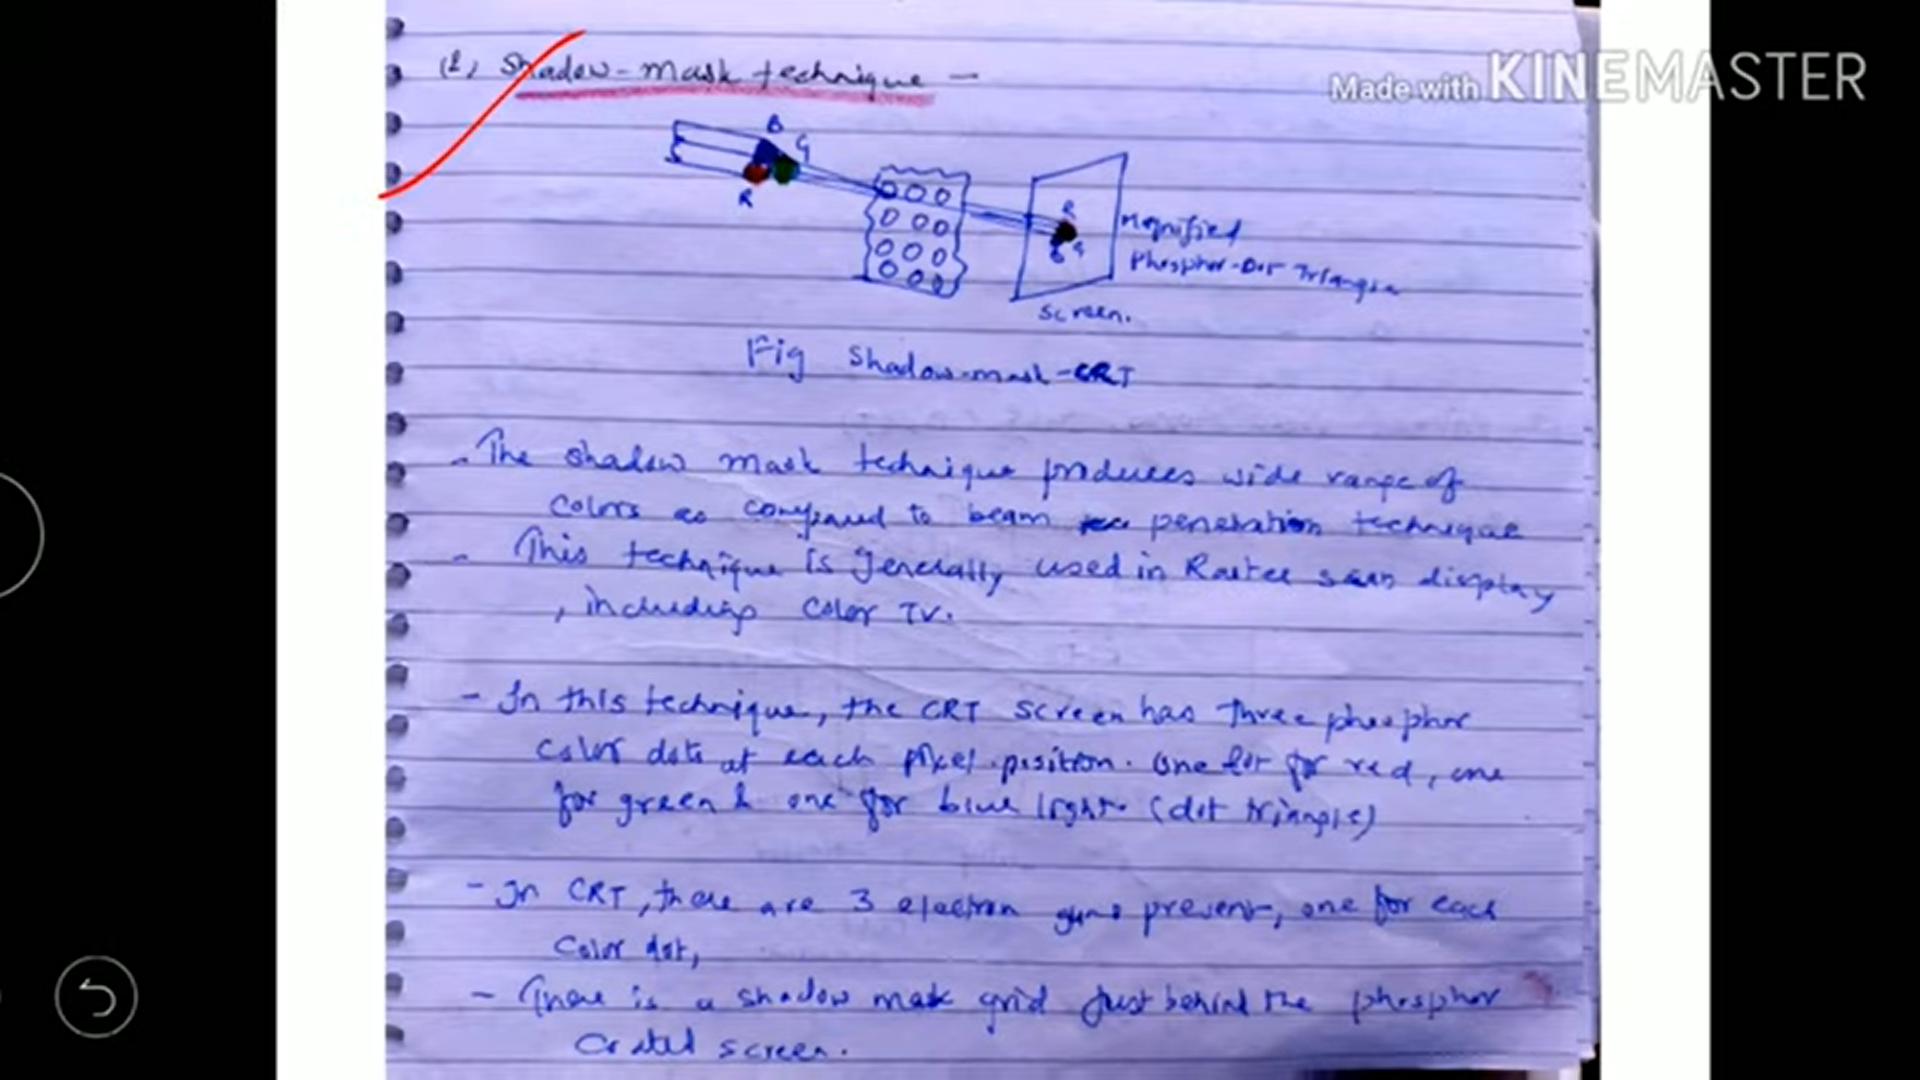 (2) Shadow-mask technique -
Made with KINEMASTER
B
G
R
R
B G
Magnified
Phosphor-Dot Triangle
Screen.
Fig Shadow-mask-CRT
- The shadow mask technique produces wide range of
colors as compared to beam penetration technique
- This technique is generally used in Raster scan display
, including color TV.
- In this technique, the CRT screen has three phosphor
color dots at each pixel position. One for red, one
for green & one for blue light. (dot triangle)
- In CRT, there are 3 electron guns present, one for each
color dot,
- There is a shadow mask grid just behind the phosphor
coated screen.